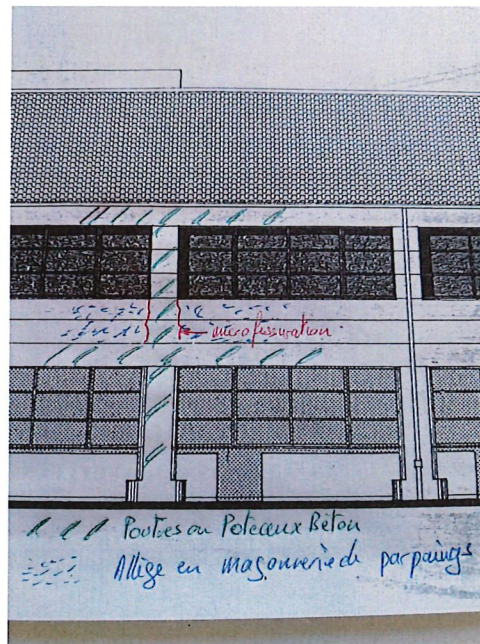 microfissuration
Poutres ou Poteaux Béton
Allège en maçonnerie de parpaings